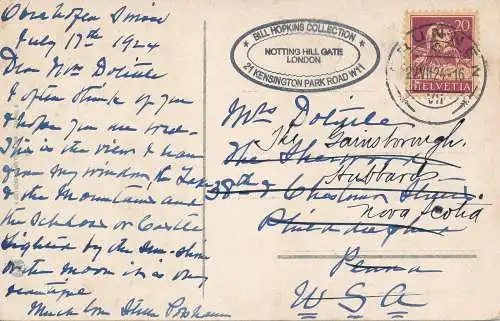 Oberhofen Suisse
July 17th 1924
Dear Mrs Dolittle
I often think of you
& hope you are well.
This is the view I have
from my window, the Lake
& the Mountains and
the Schloss or Castle
lighted by the Sun-shine
or the moon it is very
beautiful
Much love
BILL HOPKINS COLLECTION
NOTTING HILL GATE
LONDON
21 KENSINGTON PARK ROAD W11
20
HELVETIA
Mrs Dolittle
The Gainsborough
The
Hubbards
38th & Chestnut
Nova Scotia
Philadelphia
Penna
U S A